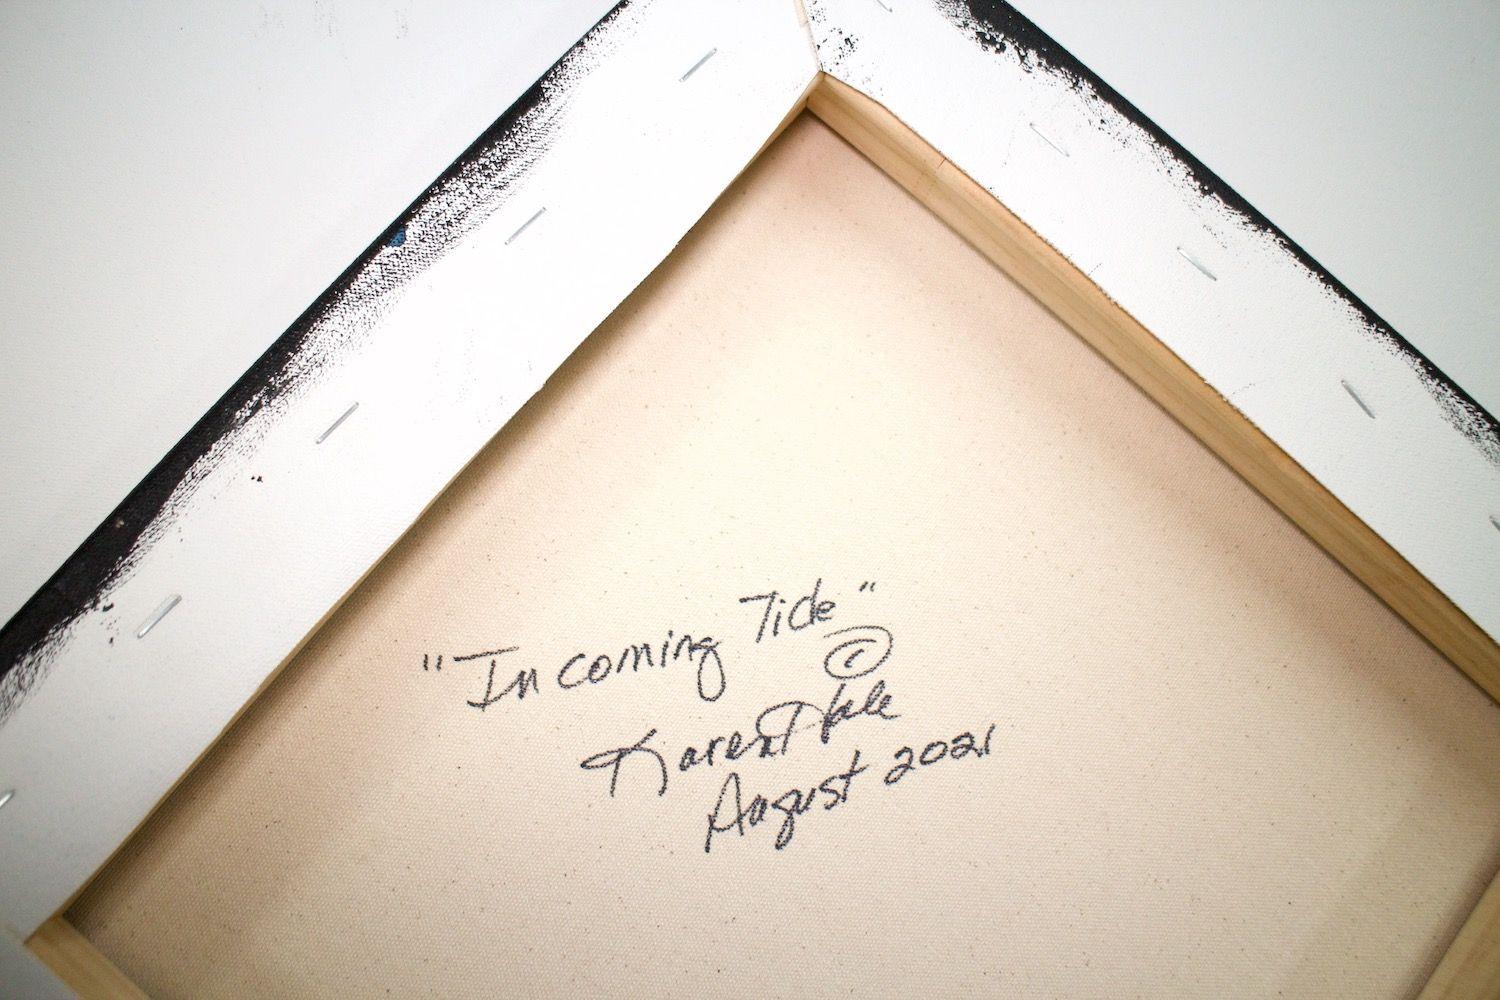 "Incoming Tide"
©
Karen Hale
August 2021